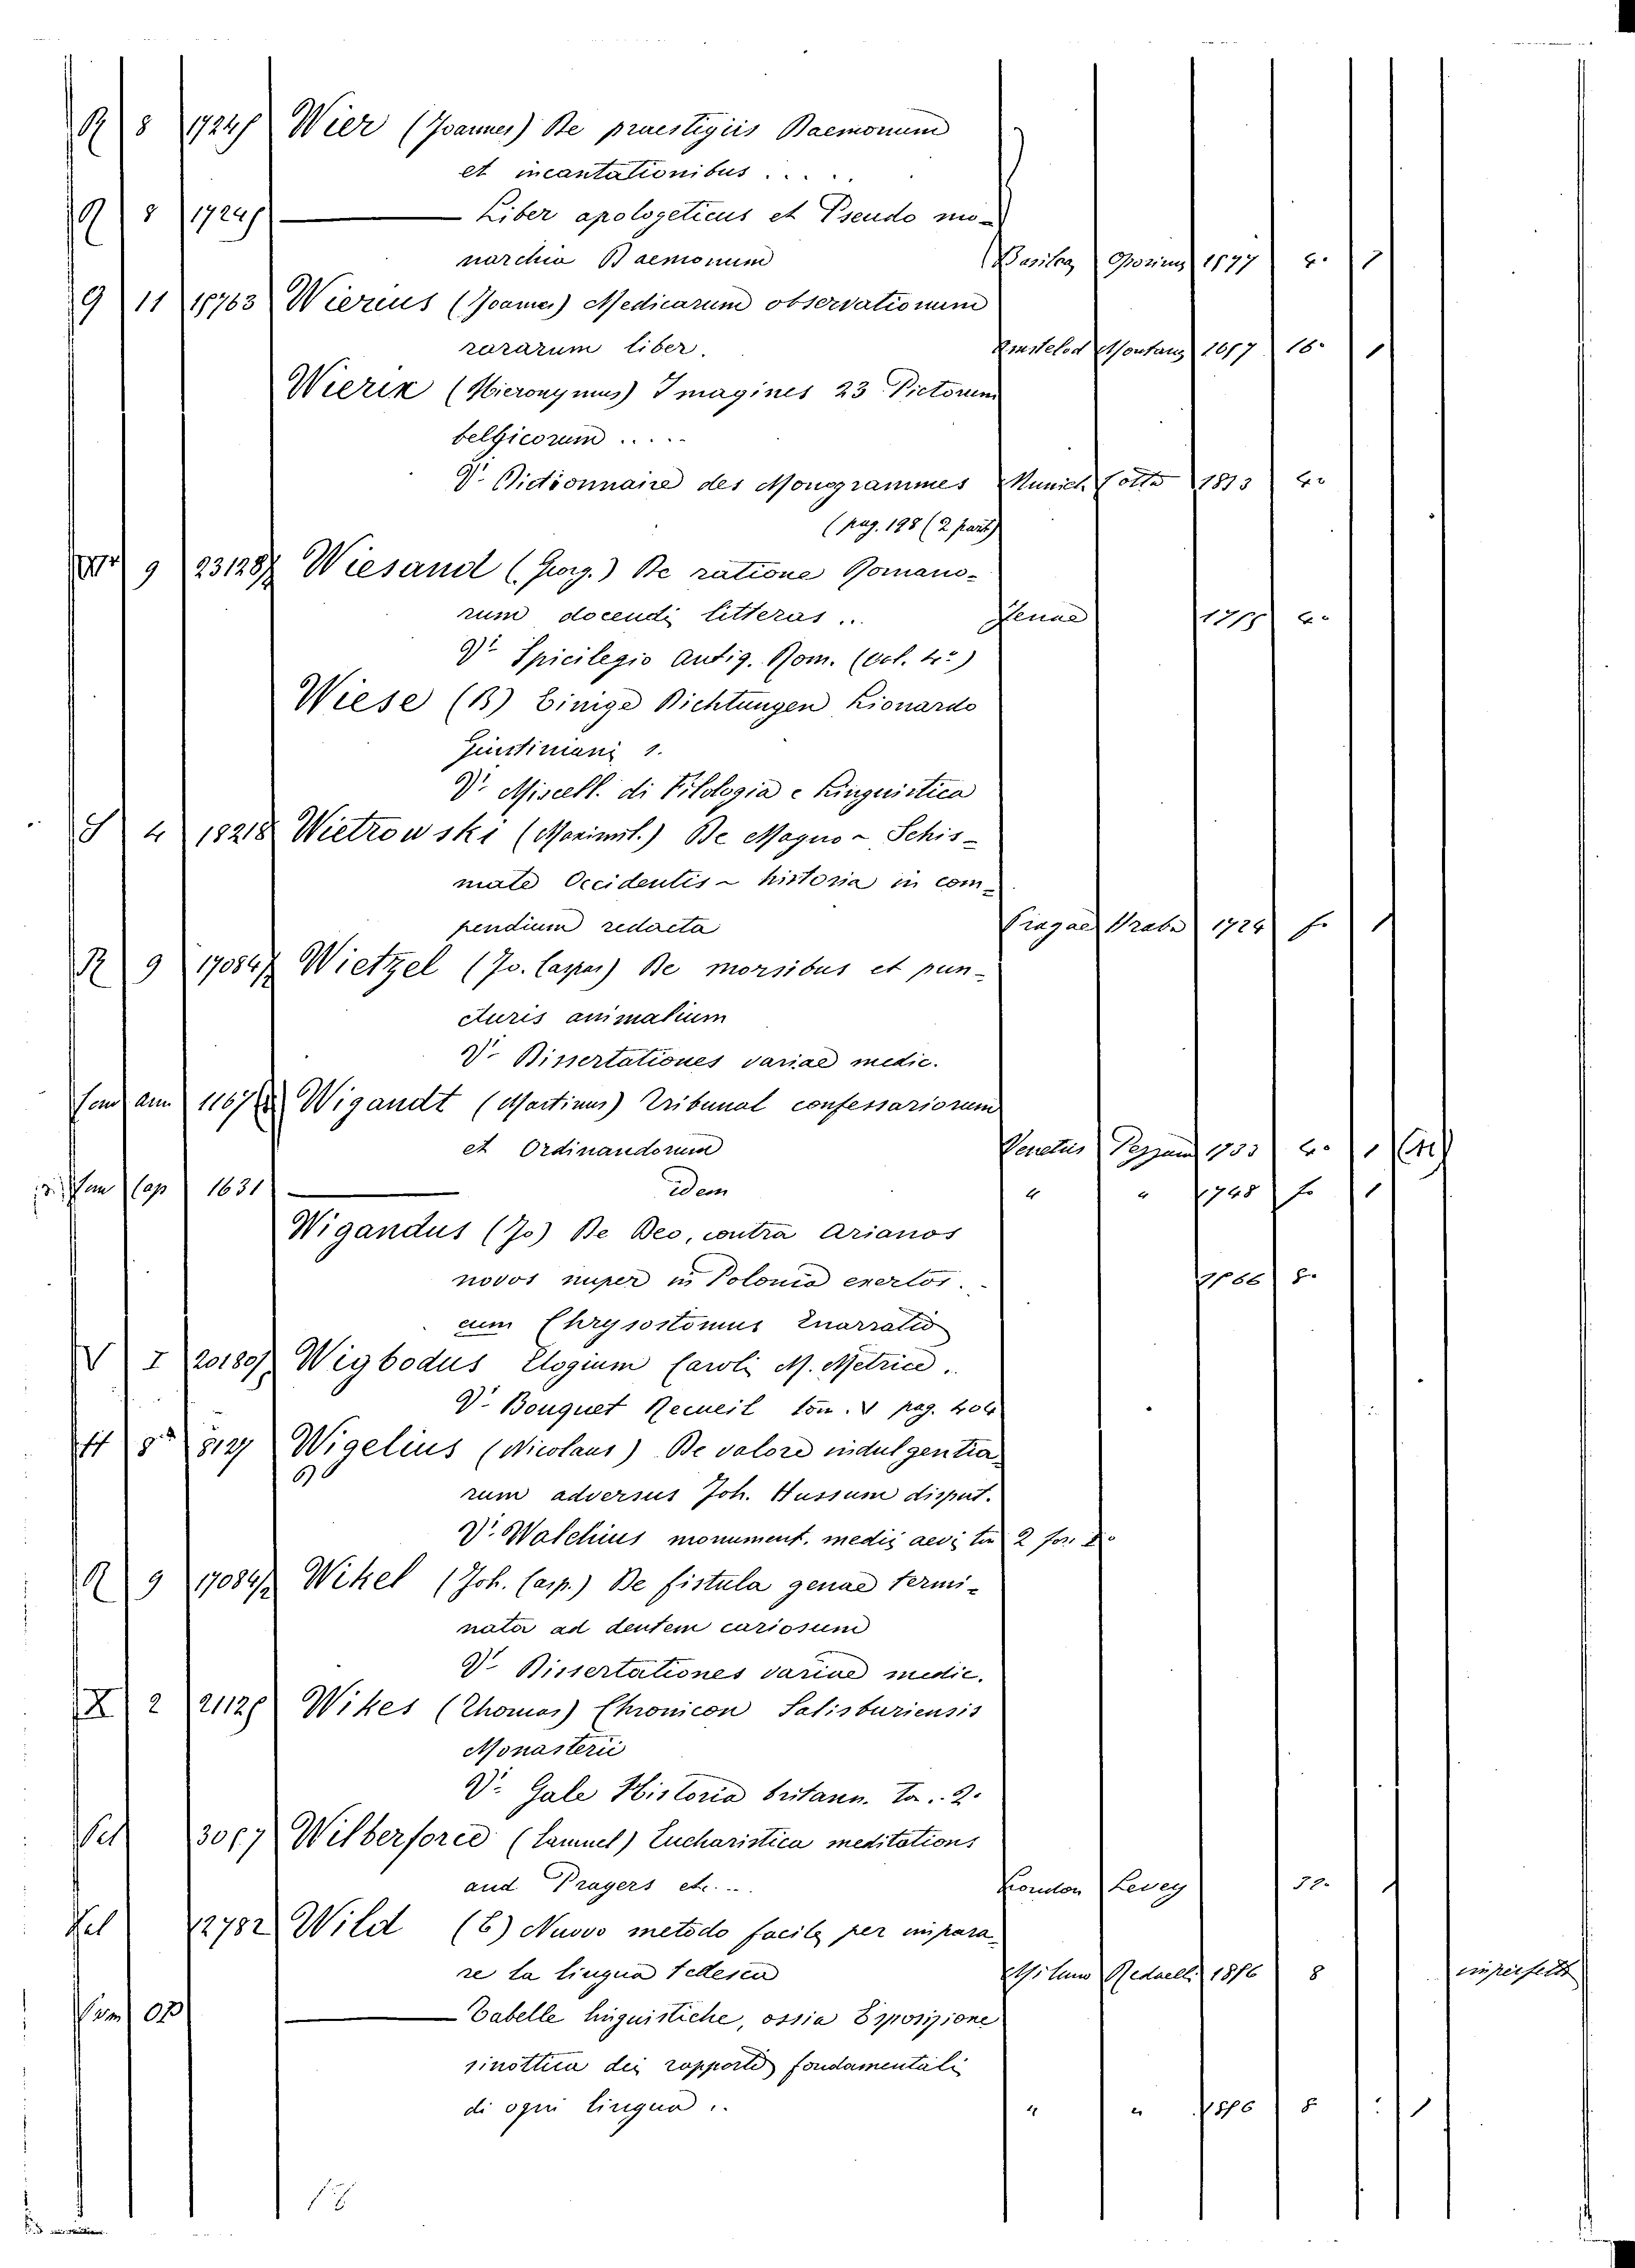 R 8 17245 Wier (Joannes) De praestigiis Daemonum
et incantationibus . . . . .
R 8 17245 — Liber apologeticus et Pseudo mo-
narchia Daemonum Basileæ Oporinus 1577 4.° 1
Q 11 15763 Wierius (Joannes) Medicarum observationum
rararum liber. Amstelod Montanus 1657 16° 1
Wierix (Hieronymus) Imagines 23 Pictorum
belgicorum . . . . .
V. Dictionnaire des Monogrammes Munich Cotta 1813 4°
(pag. 198 (2 part)
9 23128/ Wiesand (Georg.) De ratione Romano-
rum docendi litteras . . Jenae 4°
V. Spicilegio Antiq. Rom. (vol. 4°)
Wiese (B) Einige Dichtungen Lionardo
Giustiniani s.
V. Miscell. di Filologia e Linguistica
S 4 18218 Wietrowski (Maximil.) De Magno ~ Schis-
mate Occidentis ~ historia in com-
pendium redacta Pragae Wrabe 1724 f.° 1
R 9 17084/2 Wietzel (Jo. Caspar) De morsibus et pun-
cturis animalium
V. Dissertationes variae medic.
1167 Wigandt (Martinus) Tribunal confessariorum
et Ordinandorum Venetiis Pezzana 1733 4.° 1
Cap 1631 — idem " " 1748 f.° 1
Wigandus (Jo) De Deo, contra Arianos
novos nuper in Polonia exertos. . 1566 8°
cum Chrysostomus Enarratio
V I 20180/ Wigbodus Elogium Caroli M. Metrice.
V. Bouquet Recueil tom. V pag. 404
H 8ª 8127 Wigelius (Nicolaus) De valore indulgentia-
rum adversus Joh. Hussum disput.
V. Walchius monument. medii aevi to 2
R 9 17084/2 Wikel (Joh. Casp.) De fistula genae termi-
nata ad dentem cariosum
V. Dissertationes variae medic.
X 2 21125 Wikes (Thomas) Chronicon Salisburiensis
Monasterii
V. Gale Historia britann. To. . 2.
Sel 3057 Wilberforce (Samuel) Eucharistica meditations
and Prayers etc. . . London Levey 32° 1
Sel 12782 Wild (E) Nuovo metodo facile per impara-
re la lingua tedesca Milano Redaelli 1856 8 imperfetto
— Tabelle linguistiche, ossia Esposizione
sinottica dei rapporti fondamentali
di ogni lingua . . " " 1856 8 1